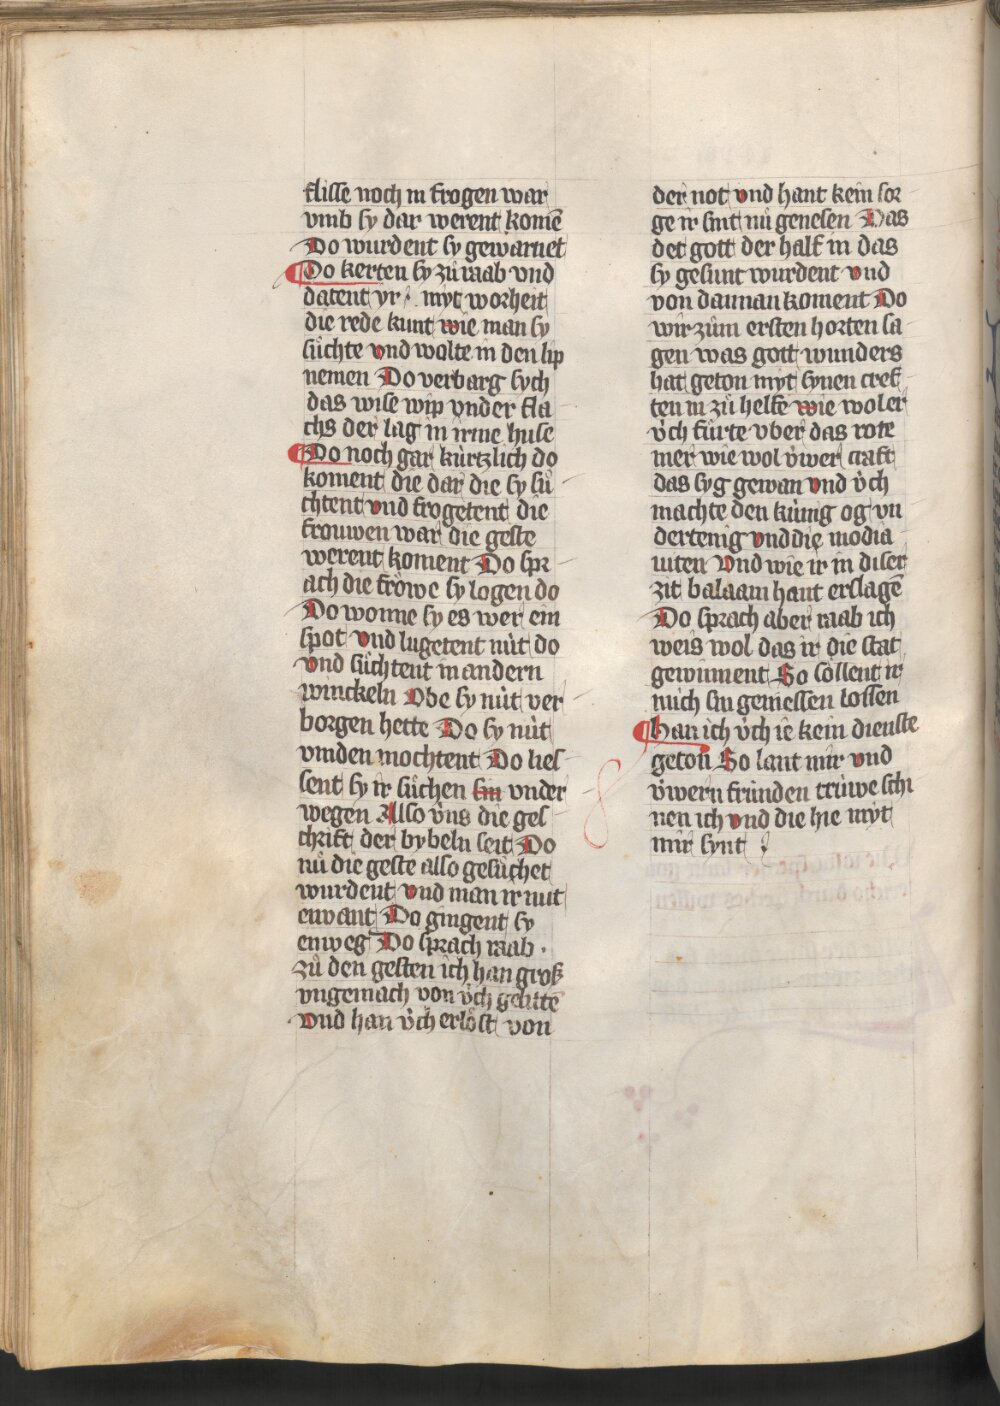 flisse noch in frogen war
vmb sy dar werent komē
Do wurdent sy gewarnet
Do kerten sy zů raab vnd
datent yr myt worheit
die rede kunt wie man sy
sůchte vnd wolte in den lip
nemen Do verbarg sych
das wise wip vnder fla
chs der lag in irme huse
Do noch gar kurtzlich do
koment die dar die sy sů
chtent vnd frogetent die
frouwen war die geste
werent koment Do spr
ach die frőwe sy logen do
Do wonne sy es wer ein
spot vnd lugetent nůt do
vnd sůchtent in andern
winckeln Obe sy nůt ver
borgen hette Do sy nůt
vinden mochtent Do lies
sent sy ir sůchen sin vnder
wegen Also v̊ns die ges
chrift der bybeln seit Do
nů die geste also gesůchet
wurdent vnd man ir nut
envant Do gingent sy
enweg Do sprach raab
zů den gesten ich han groß
vngemach von v̊ch gelittē
vnd han v̊ch erlőst von
der not vnd hant kein sor
ge ir sint nů genesen Das
det gott der half in das
sy gesunt wurdent vnd
von dannan koment Do
wir zům ersten horten sa
gen was gott wunders
hat geton myt synen cref
ten in zů helfe wie wol er
v̊ch fůrte vber das rote
mer wie wol v̊wer craft
das syg gewan vnd v̊ch
machte den kůnig og vn
dertenig vnd die modia
niten Vnd wie ir in diser
zit balaam hant erslagē
Do sprach aber raab ich
weis wol das ir die stat
gewinnent So sőllent ir
mich sin geniessen lossen
Han ich v̊ch ie kein dienste
geton So lant mir vnd
v̊wern frůnden trůwe schi
nen ich vnd die hie myt
mir synt